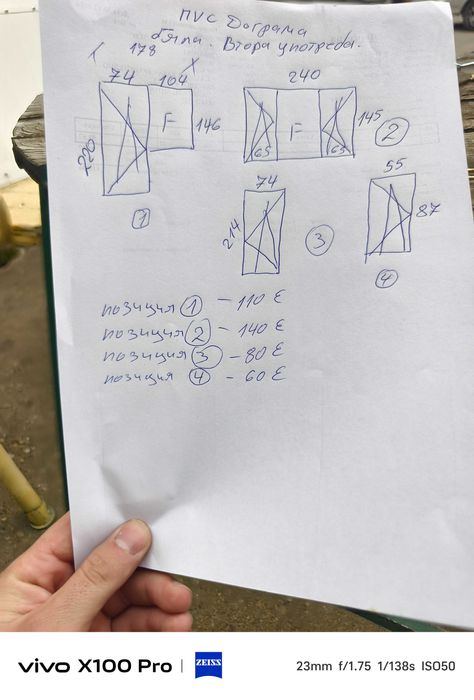 PVC Дограма
бяла. Втора употреба.
178
74 104
F
146
220
1
240
65 F 65
145
2
74
214
3
55
87
4
позиция 1 - 110 €
позиция 2 - 140 €
позиция 3 - 80 €
позиция 4 - 60 €
vivo X100 Pro | ISO | ZEISS
23mm f/1.75 1/138s ISO50